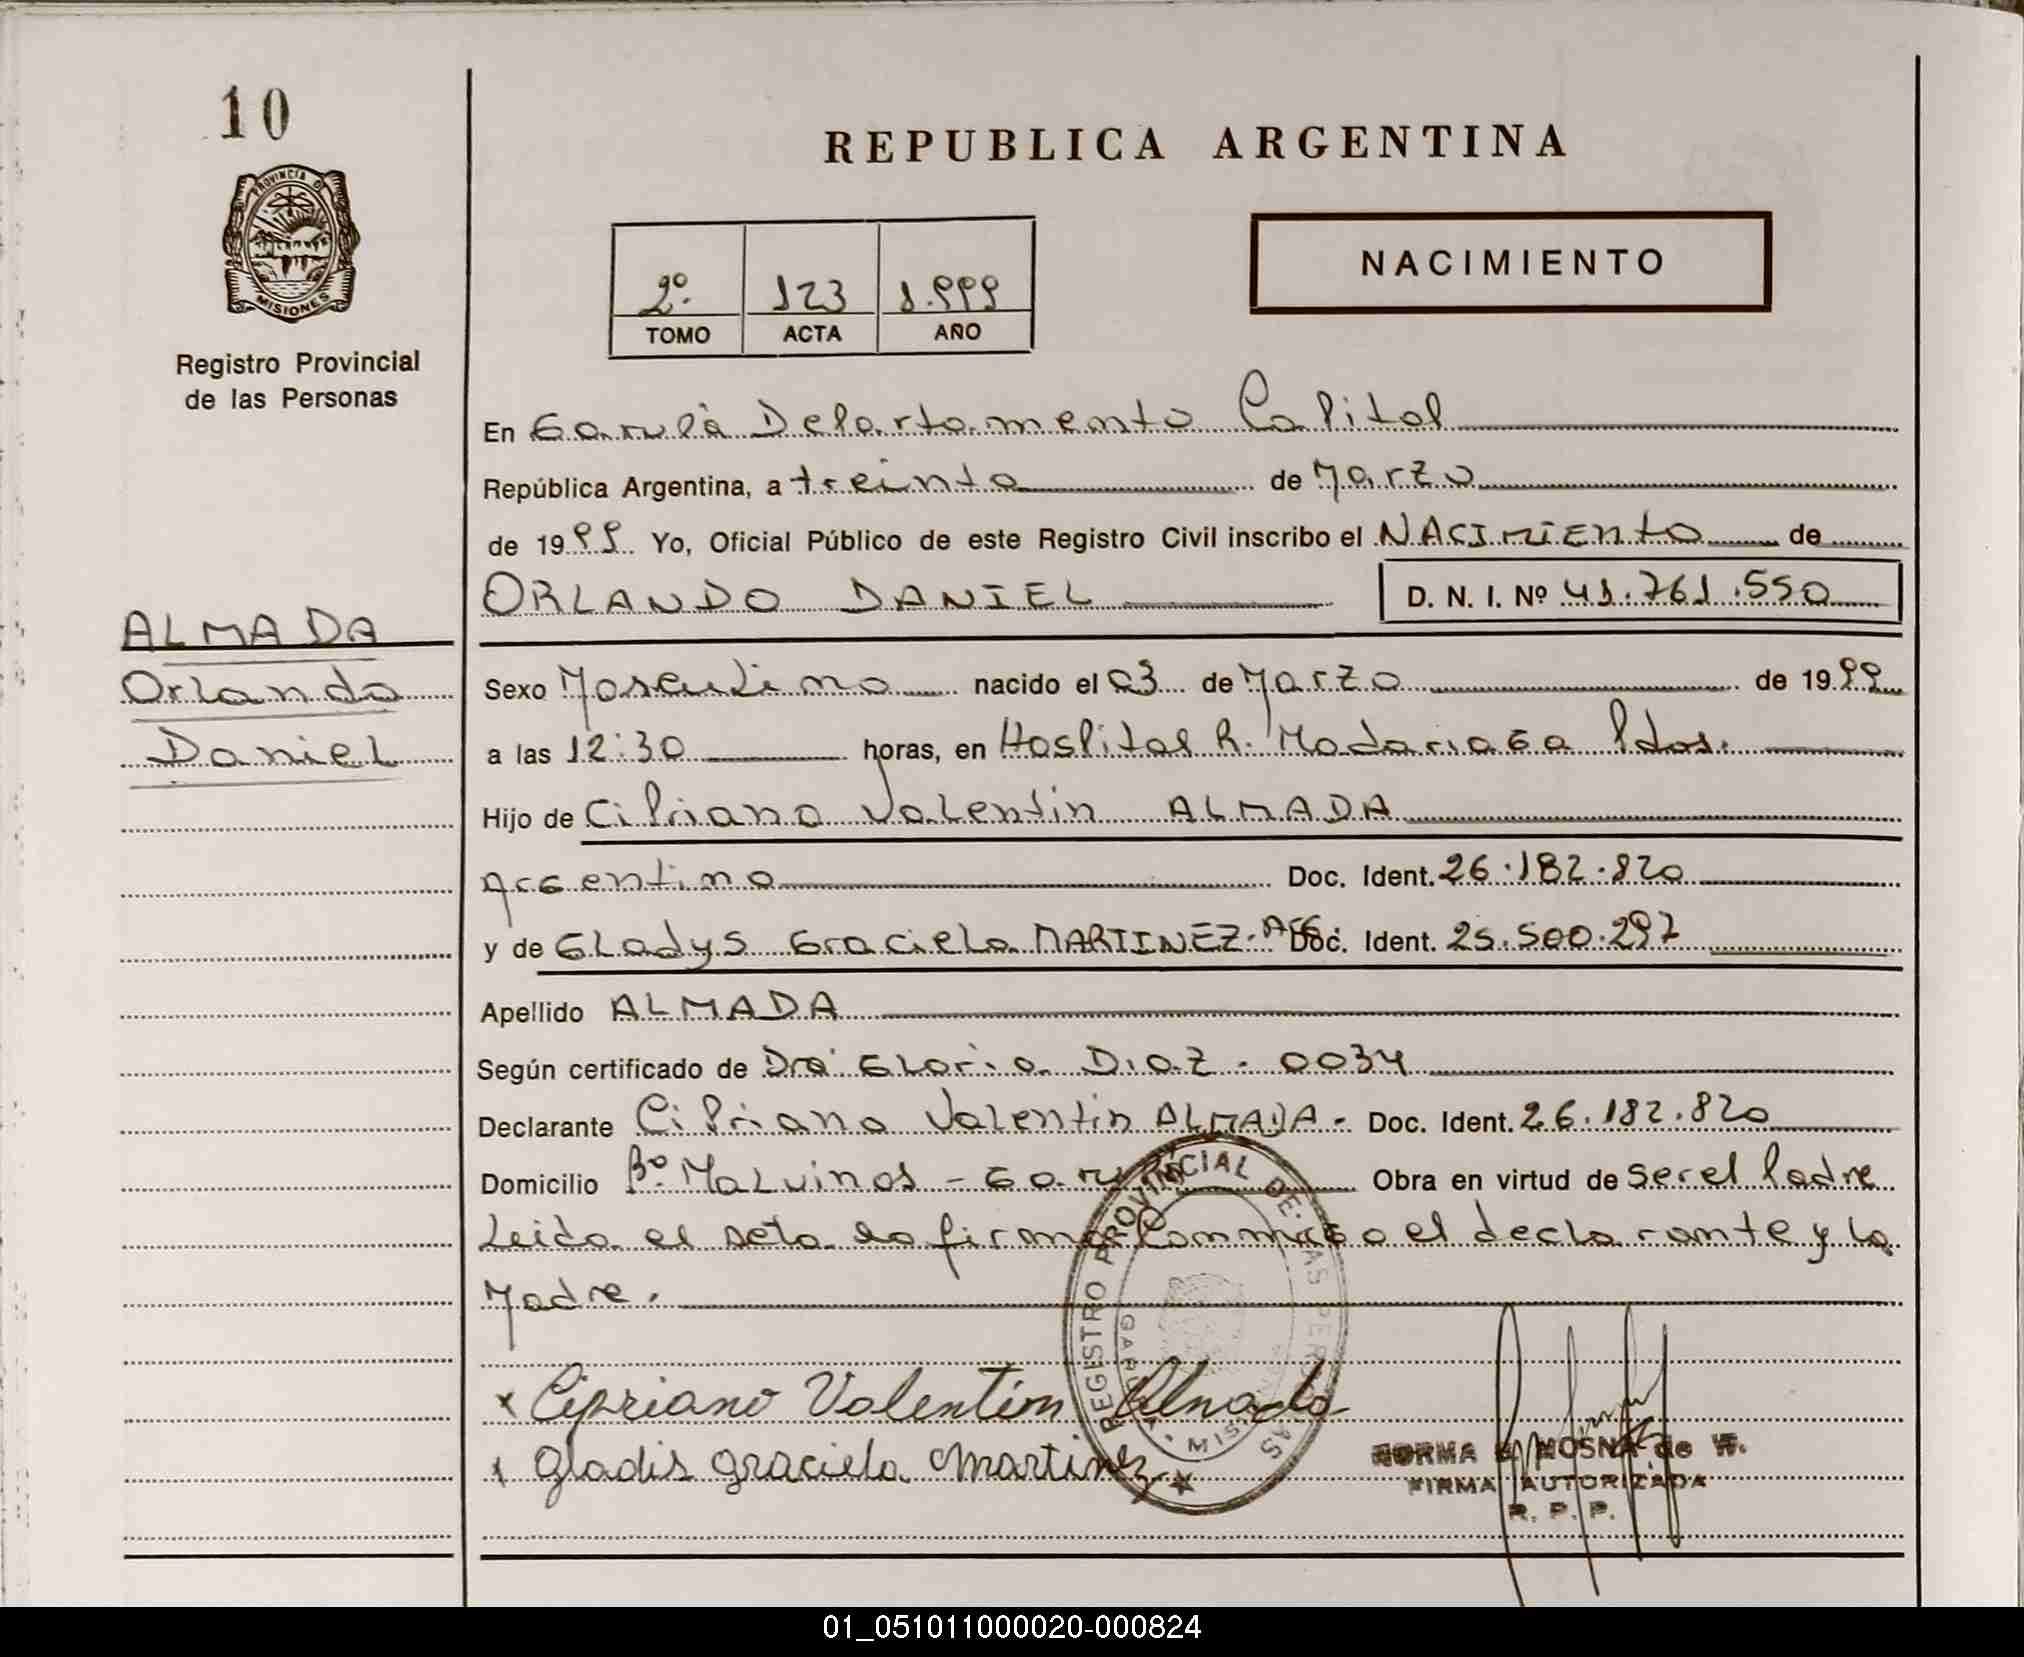 10
PROVINCIA D
MISIONES
Registro Provincial
de las Personas
ALMADA
Orlando
Daniel
REPUBLICA ARGENTINA
NACIMIENTO
2º. 123 1.999
TOMO ACTA AÑO
En Garupà Departamento Capital
República Argentina, a treinta de Marzo
de 1999 Yo, Oficial Público de este Registro Civil inscribo el NACIMIENTO de
ORLANDO DANIEL D. N. I. Nº 41.761.550
Sexo Masculino nacido el 03 de Marzo de 1999
a las 12:30 horas, en Hospital R. Madariaga Pdas.
Hijo de Cipriano Valentin ALMADA
Argentino Doc. Ident. 26.182.820
y de Gladys Graciela MARTINEZ. Arg. Doc. Ident. 25.500.297
Apellido ALMADA
Según certificado de Dra Gloria Diaz - 0034
Declarante Cipriano Valentin ALMADA - Doc. Ident. 26.182.820
Domicilio Bº. Malvinas - Garupá Obra en virtud de ser el Padre
Leida el acta la firma conmigo el declarante y la
Madre.
REGISTRO PROVINCIAL DE LAS PERSONAS
GARUPA - MISIONES
x Cipriano Valentin Almada
x Gladis graciela martinez
NORMA MOSNA de W.
FIRMA AUTORIZADA
R. P. P.
01_051011000020-000824